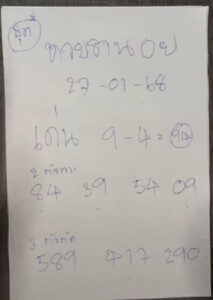 ฮานอย
27-01-68
เด่น 9-4=94
2 ตัว
84 39 54 09
3 ตัว
589 417 290